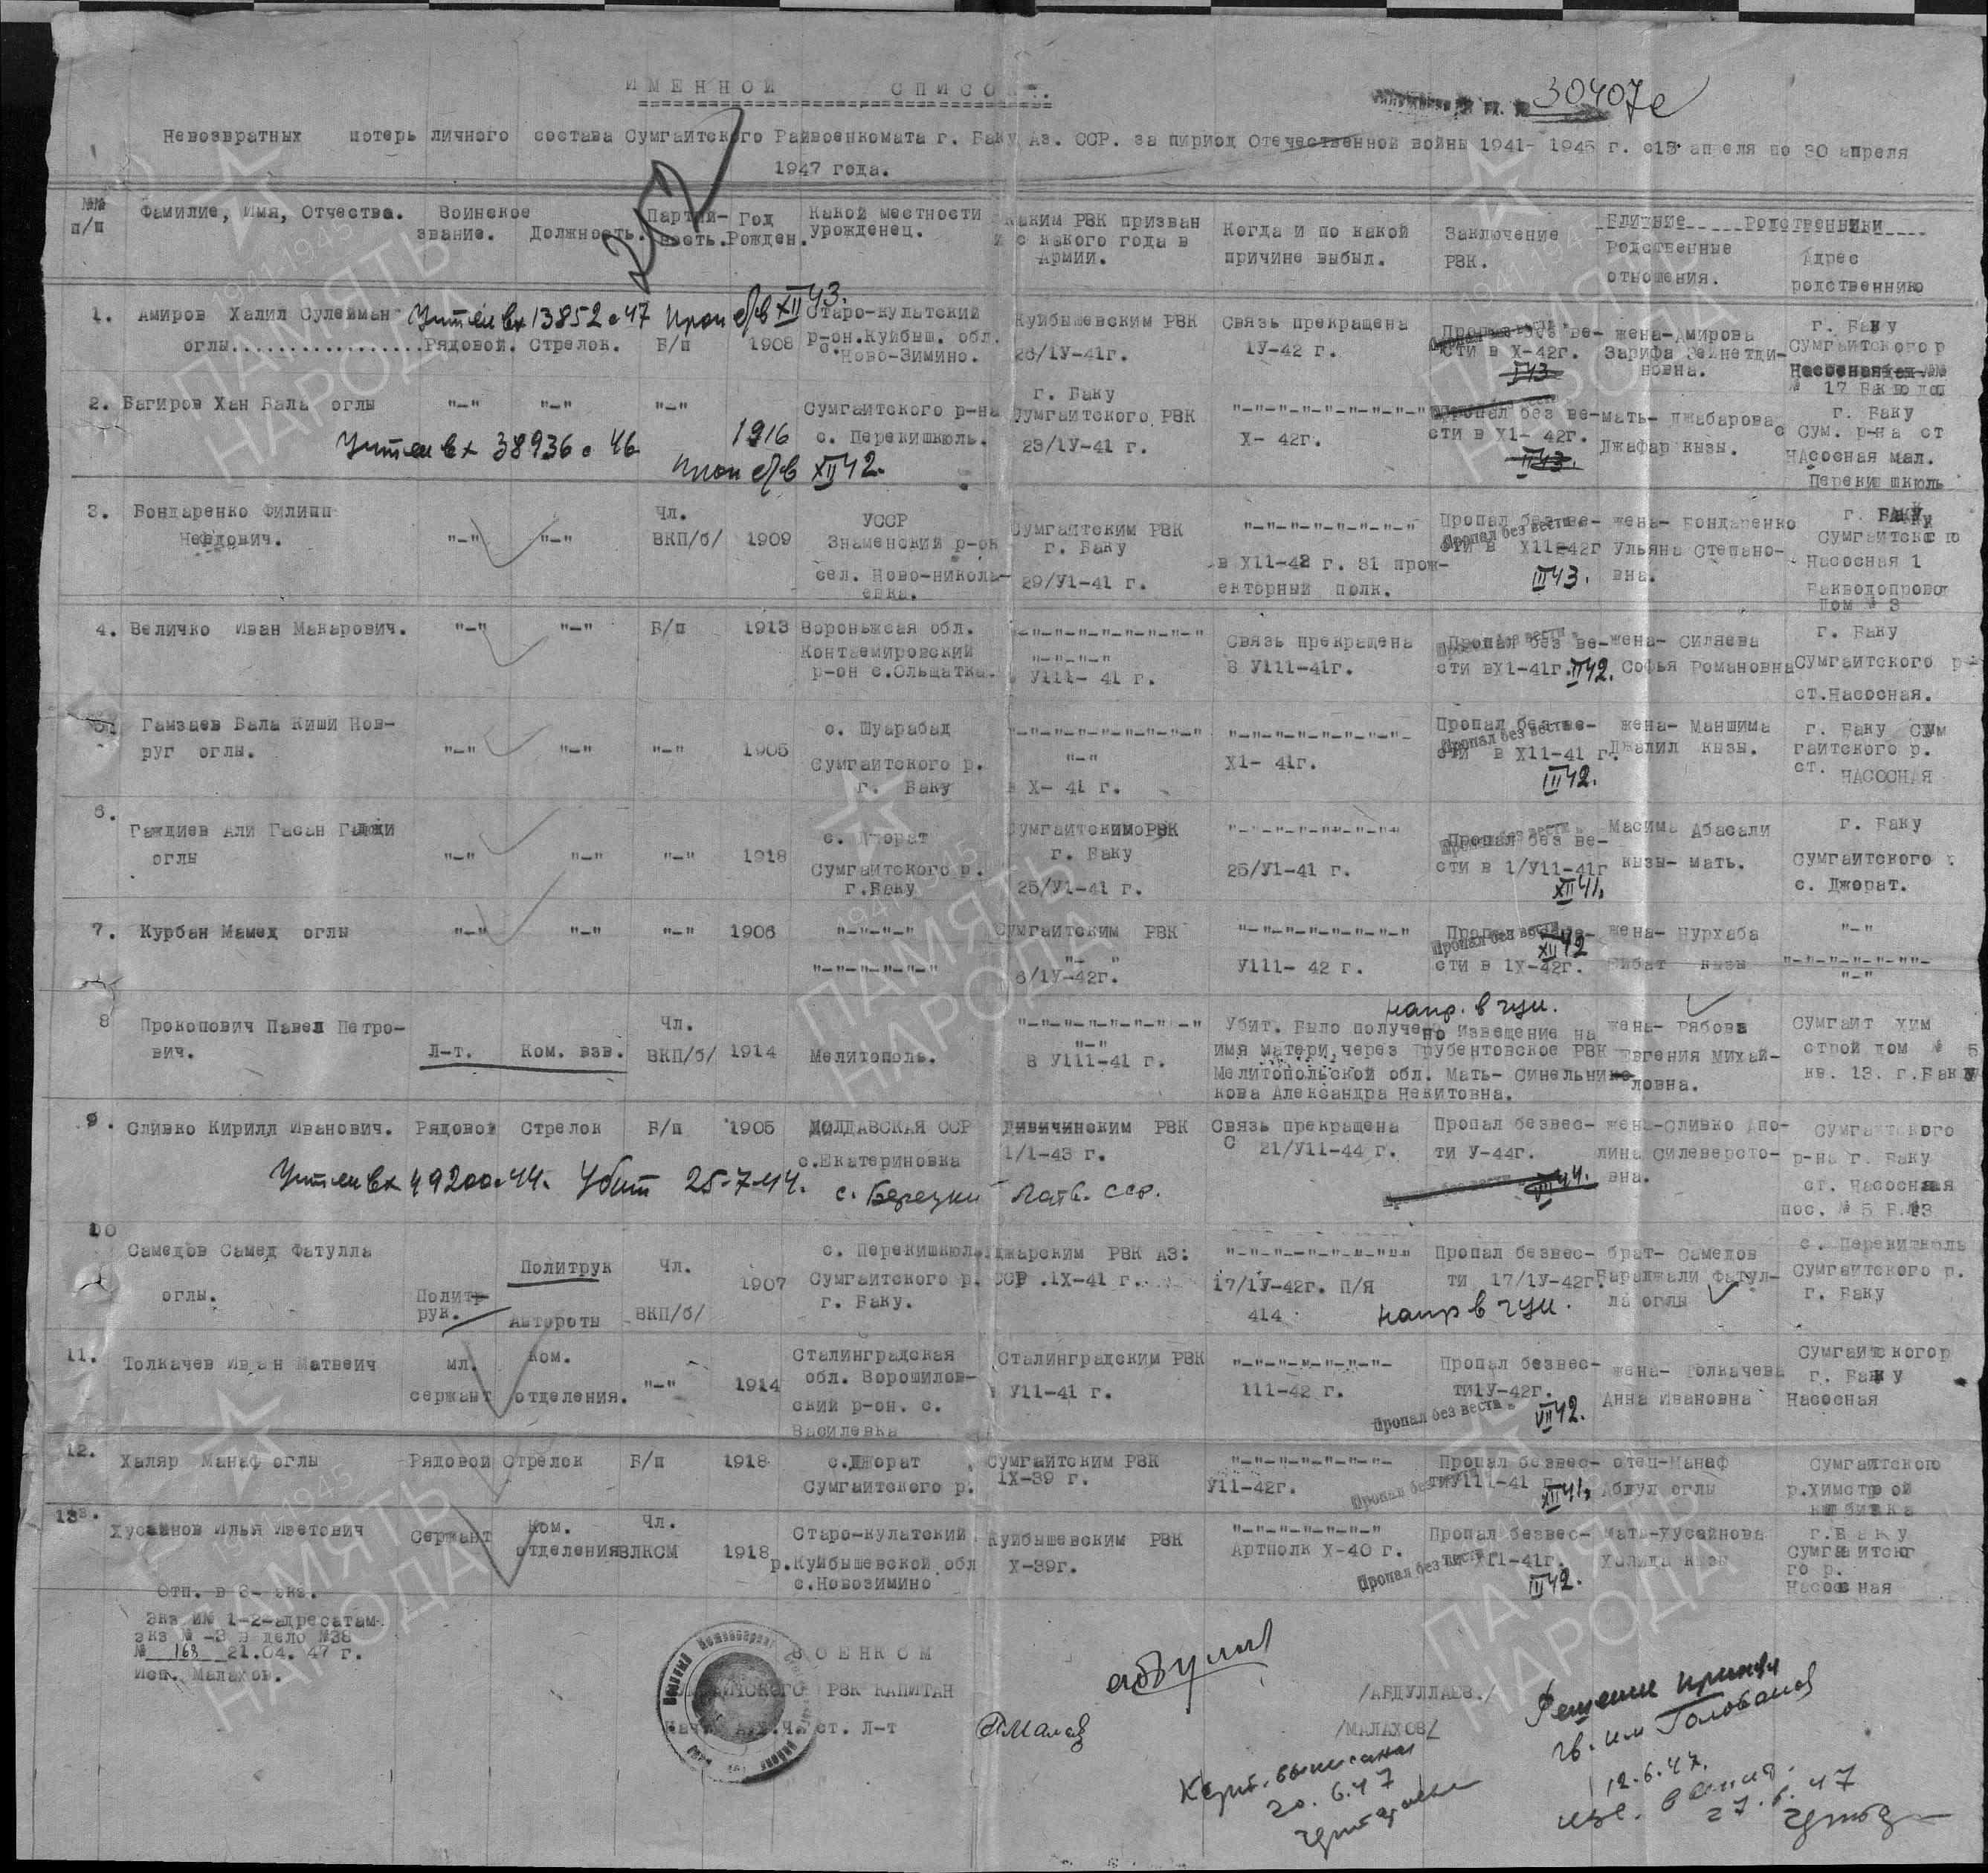 ИМЕННОЙ СПИСОК.
30407с
Невозвратных потерь личного состава Сумгаитского Райвоенкомата г. Баку Аз. ССР. за пириод Отечественной войны 1941- 1945 г. с15 апреля по 30 апреля
1947 года.
№№ п/п
Фамилие, Имя, Отчества.
Воинское звание.
Должность.
Партий- ность.
Год Рожден.
Какой местности урожденец.
Каким РВК призван и с какого года в Армии.
Когда и по какой причине выбыл.
Заключение РВК.
Ближние Родственники
Родственные отношения.
Адрес родственнию
1. Амиров Халил Сулейман
оглы..................Рядовой. Стрелок. Б/п 1908
Учтен вх 13852с47 проп б/в XII 43.
Старо-кулатский
р-он.Куйбыш. обл.
с.Ново-Зимино.
Куйбышевским РВК
26/1У-41г.
Связь прекращена
1У-42 г.
Пропал без ве-
сти в Х-42г.
жена-Амирова
Зарифа Зейнетди-
новна.
г. Баку
Сумгаитского р
№ 17 Бакводоп
2. Багиров Хан Бала оглы "-" "-" "-"
1916
Учтен вх 38936с46
проп б/в XII 42.
Сумгаитского р-на
с. Перекишкюль.
г. Баку
Сумгаитского РВК
23/1У-41 г.
"-"-"-"-"-"-"-"
Х- 42г.
Пропал без ве-
сти в Х1- 42г.
мать- Джабарова
Джафар кызы.
г. Баку
с Сум. р-на ст
НАсосная мал.
Перекиш шкюль
3. Бондаренко Филипп
Нефдович.
"-" "-"
Чл.
ВКП/б/ 1909
УССР
Знаменский р-он
сел. Ново-никола-
евка.
Сумгаитским РВК
г. Баку
29/У1-41 г.
"-"-"-"-"-"-"-"
в Х11-42 г. 31 прож-
екторный полк.
Пропал без ве-
сти в Х11-42г
Пропал без вести
III 43.
жена- Бондаренко
Ульяна Степано-
вна.
г. БАКУ
Сумгаитского
Насосная 1
Бакводопровод
Дом № 3
4. Величко Иван Макарович. "-" "-" Б/п 1913
Вороньжсая обл.
Контаемировский
р-он с.Ольщатка.
"-"-"-"-"-"-"-"-"
"-"-"-"
У111- 41 г.
Связь прекращена
В У111-41г.
Пропал без ве-
сти вХ1-41г.
II 42.
жена- Силяева
Софья Романовна
г. Баку
Сумгаитского р
ст.Насосная.
5. Гамзаев Бала Киши Нов-
руг оглы.
"-" "-" "-" 1905
с. Шуарабад
Сумгаитского р.
г. Баку
"-"-"-"-"-"-"-"-"
"-"
в Х- 41 г.
"-"-"-"-"-"-"-"-
Х1- 41г.
Пропал без ве-
сти в Х11-41 г.
Пропал без вести
III 42.
жена- Маншима
Джалил кызы.
г. Баку Сум
гаитского р.
ст. НАСОСНАЯ
6. Гаждиев Али Гасан Гаджи
оглы
"-" "-" "-" 1918
с. Джорат
Сумгаитского р.
г.Баку
Сумгаитским РВК
г. Баку
25/У1-41 г.
"-"-"-"-"-"-"
25/У1-41 г.
Пропал без ве-
сти в 1/У11-41г
XII 41.
Масима Абасали
кызы- мать.
г. Баку
Сумгаитского
с. Джорат.
7. Курбан Мамед оглы "-" "-" "-" 1906
"-"-"-"
"-"-"-"-"-"
Сумгаитским РВК
6/1У-42г.
"-"-"-"-"-"-"-"
У111- 42 г.
Пропал без вести
XII 42
сти в 1Х-42г.
жена- Нурхаба
кызы
"-"
"-"-"-"-"-""-
"-"
8 Прокопович Павел Петро-
вич.
Л-т. Ком. взв.
Чл.
ВКП/б/ 1914
Мелитополь.
"-"-"-"-"-"-"-"
"-"
В У111-41 г.
напр. в гуи.
Убит. Было получено извещение на
имя матери,через Трубентовское РВК
Мелитопольской обл. Мать- Синельни
кова Александра Некитовна.
жена- Рябова
Евгения Михай-
ловна.
Сумгаит хим
строй дом № 5
кв. 13. г.Баку
9. Сливко Кирилл Иванович. Рядовой Стрелок Б/п 1905
МОЛДАВСКАЯ ССР
с.Екатериновка
Дивичинским РВК
1/1-43 г.
Связь прекращена
С 21/У11-44 г.
Пропал безвес-
ти У-44г.
жена-Сливко Апо-
лина Силеверсто-
вна.
Сумгаитского
р-на г. Баку
ст. Насосная
пос. № 5
Учтен вх 49200с44. Убит 25-7-44. с. Березки Латв. ССР.
10 Самедов Самед Фатулла
оглы.
Политрук.
Политрук
Автороты
Чл.
ВКП/б/
1907
с. Перекишкюль
Сумгаитского р.
г. Баку.
Джарским РВК АЗ:
ССР .1Х-41 г.
"-"-"-"-"-"-"-""
17/1У-42г. П/Я
414
Пропал безвес-
ти 17/1У-42г.
напр в гуи.
брат- Самедов
Бараджали Фатул-
ла оглы
с. Перекишкюль
Сумгаитского р.
г. Баку
11. Толкачев Иван Матвеич
мл.
сержант
ком.
отделения.
"-" 1914
Сталинградская
обл. Ворошилов-
ский р-он. с.
Василевка
Сталинградским РВК
У11-41 г.
"-"-"-"-"-"-"-
111-42 г.
Пропал безвес-
ти1У-42г.
Пропал без вести
VII 42.
жена- Толкачева
Анна Ивановна
Сумгаитскогор
г. Баку
Насосная
12. Халяр Манаф оглы Рядовой Стрелок Б/п 1918
с.Джорат
Сумгаитского р.
Сумгаитским РВК
1Х-39 г.
"-"-"-"-"-"-"-
У11-42г.
Пропал безвес-
тиУ111-41 г
XII 41.
отец-Манаф
Абдул оглы
Сумгаитского
р.Химстрой
13. Хусаинов Илья Иветович
Сержант
Ком.
отделения
Чл.
ВЛКСМ 1918
Старо-кулатский
р.Куйбышевской обл
с.Новозимино
Куйбышевским РВК
Х-39г.
"-"-"-"-"-"-"
Артполк Х-40 г.
Пропал безвес-
Пропал без вести
III 42.
мать-Хусайнова
Халида кызы
г.Баку
Сумгаитског
го р.
Насосная
Отп. в 3- экз.
Экз №№ 1-2-адресатам.
экз № -3 в дело №38
№ 168 21.04. 47 г.
Исп. Малахов.
ВОЕНКОМ
СУМГАИТСКОГО РВК КАПИТАН /АБДУЛЛАЕВ./
Нач. ст. Л-т /МАЛАХОВ/
Решение принял
гв. Голованов
12.6.47.
20. 6.47
27.6.47